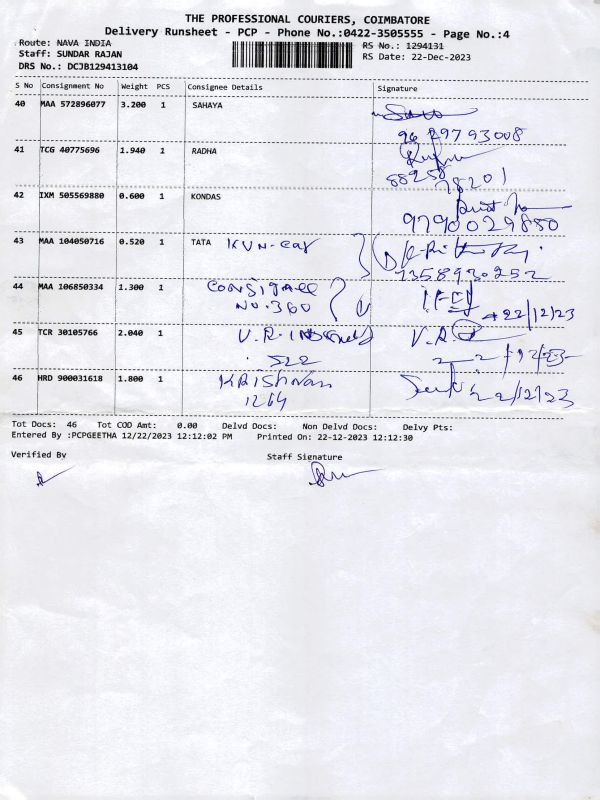 THE PROFESSIONAL COURIERS, COIMBATORE
Delivery Runsheet - PCP - Phone No.:0422-3505555 - Page No.:4
Route: NAVA INDIA
Staff: SUNDAR RAJAN
DRS No.: DCJB129413104
RS No.: 1294131
RS Date: 22-Dec-2023
S No Consignment No Weight PCS Consignee Details Signature
40 MAA 572896077 3.200 1 SAHAYA
96 29793008
41 TCG 40775696 1.940 1 RADHA
88258
78201
42 IXM 505569880 0.600 1 KONDAS
9790029880
43 MAA 104050716 0.520 1 TATA
7358930252
44 MAA 106850334 1.300 1 Consignee
NO. 360
22/12/23
45 TCR 30105766 2.040 1 V.R.
522
46 HRD 900031618 1.800 1 KRishnan
1264
22/12/23
Tot Docs: 46 Tot COD Amt: 0.00 Delvd Docs: Non Delvd Docs: Delvy Pts:
Entered By :PCPGEETHA 12/22/2023 12:12:02 PM Printed On: 22-12-2023 12:12:30
Verified By Staff Signature